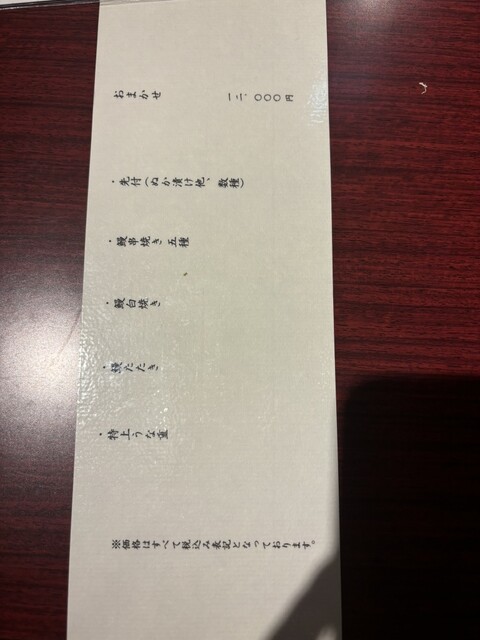 おまかせ 一二、〇〇〇円
・先付(ぬか漬け他、数種)
・鰻串焼き五種
・鰻白焼き
・鰻たたき
・特上うな重
※価格はすべて税込み表記となっております。